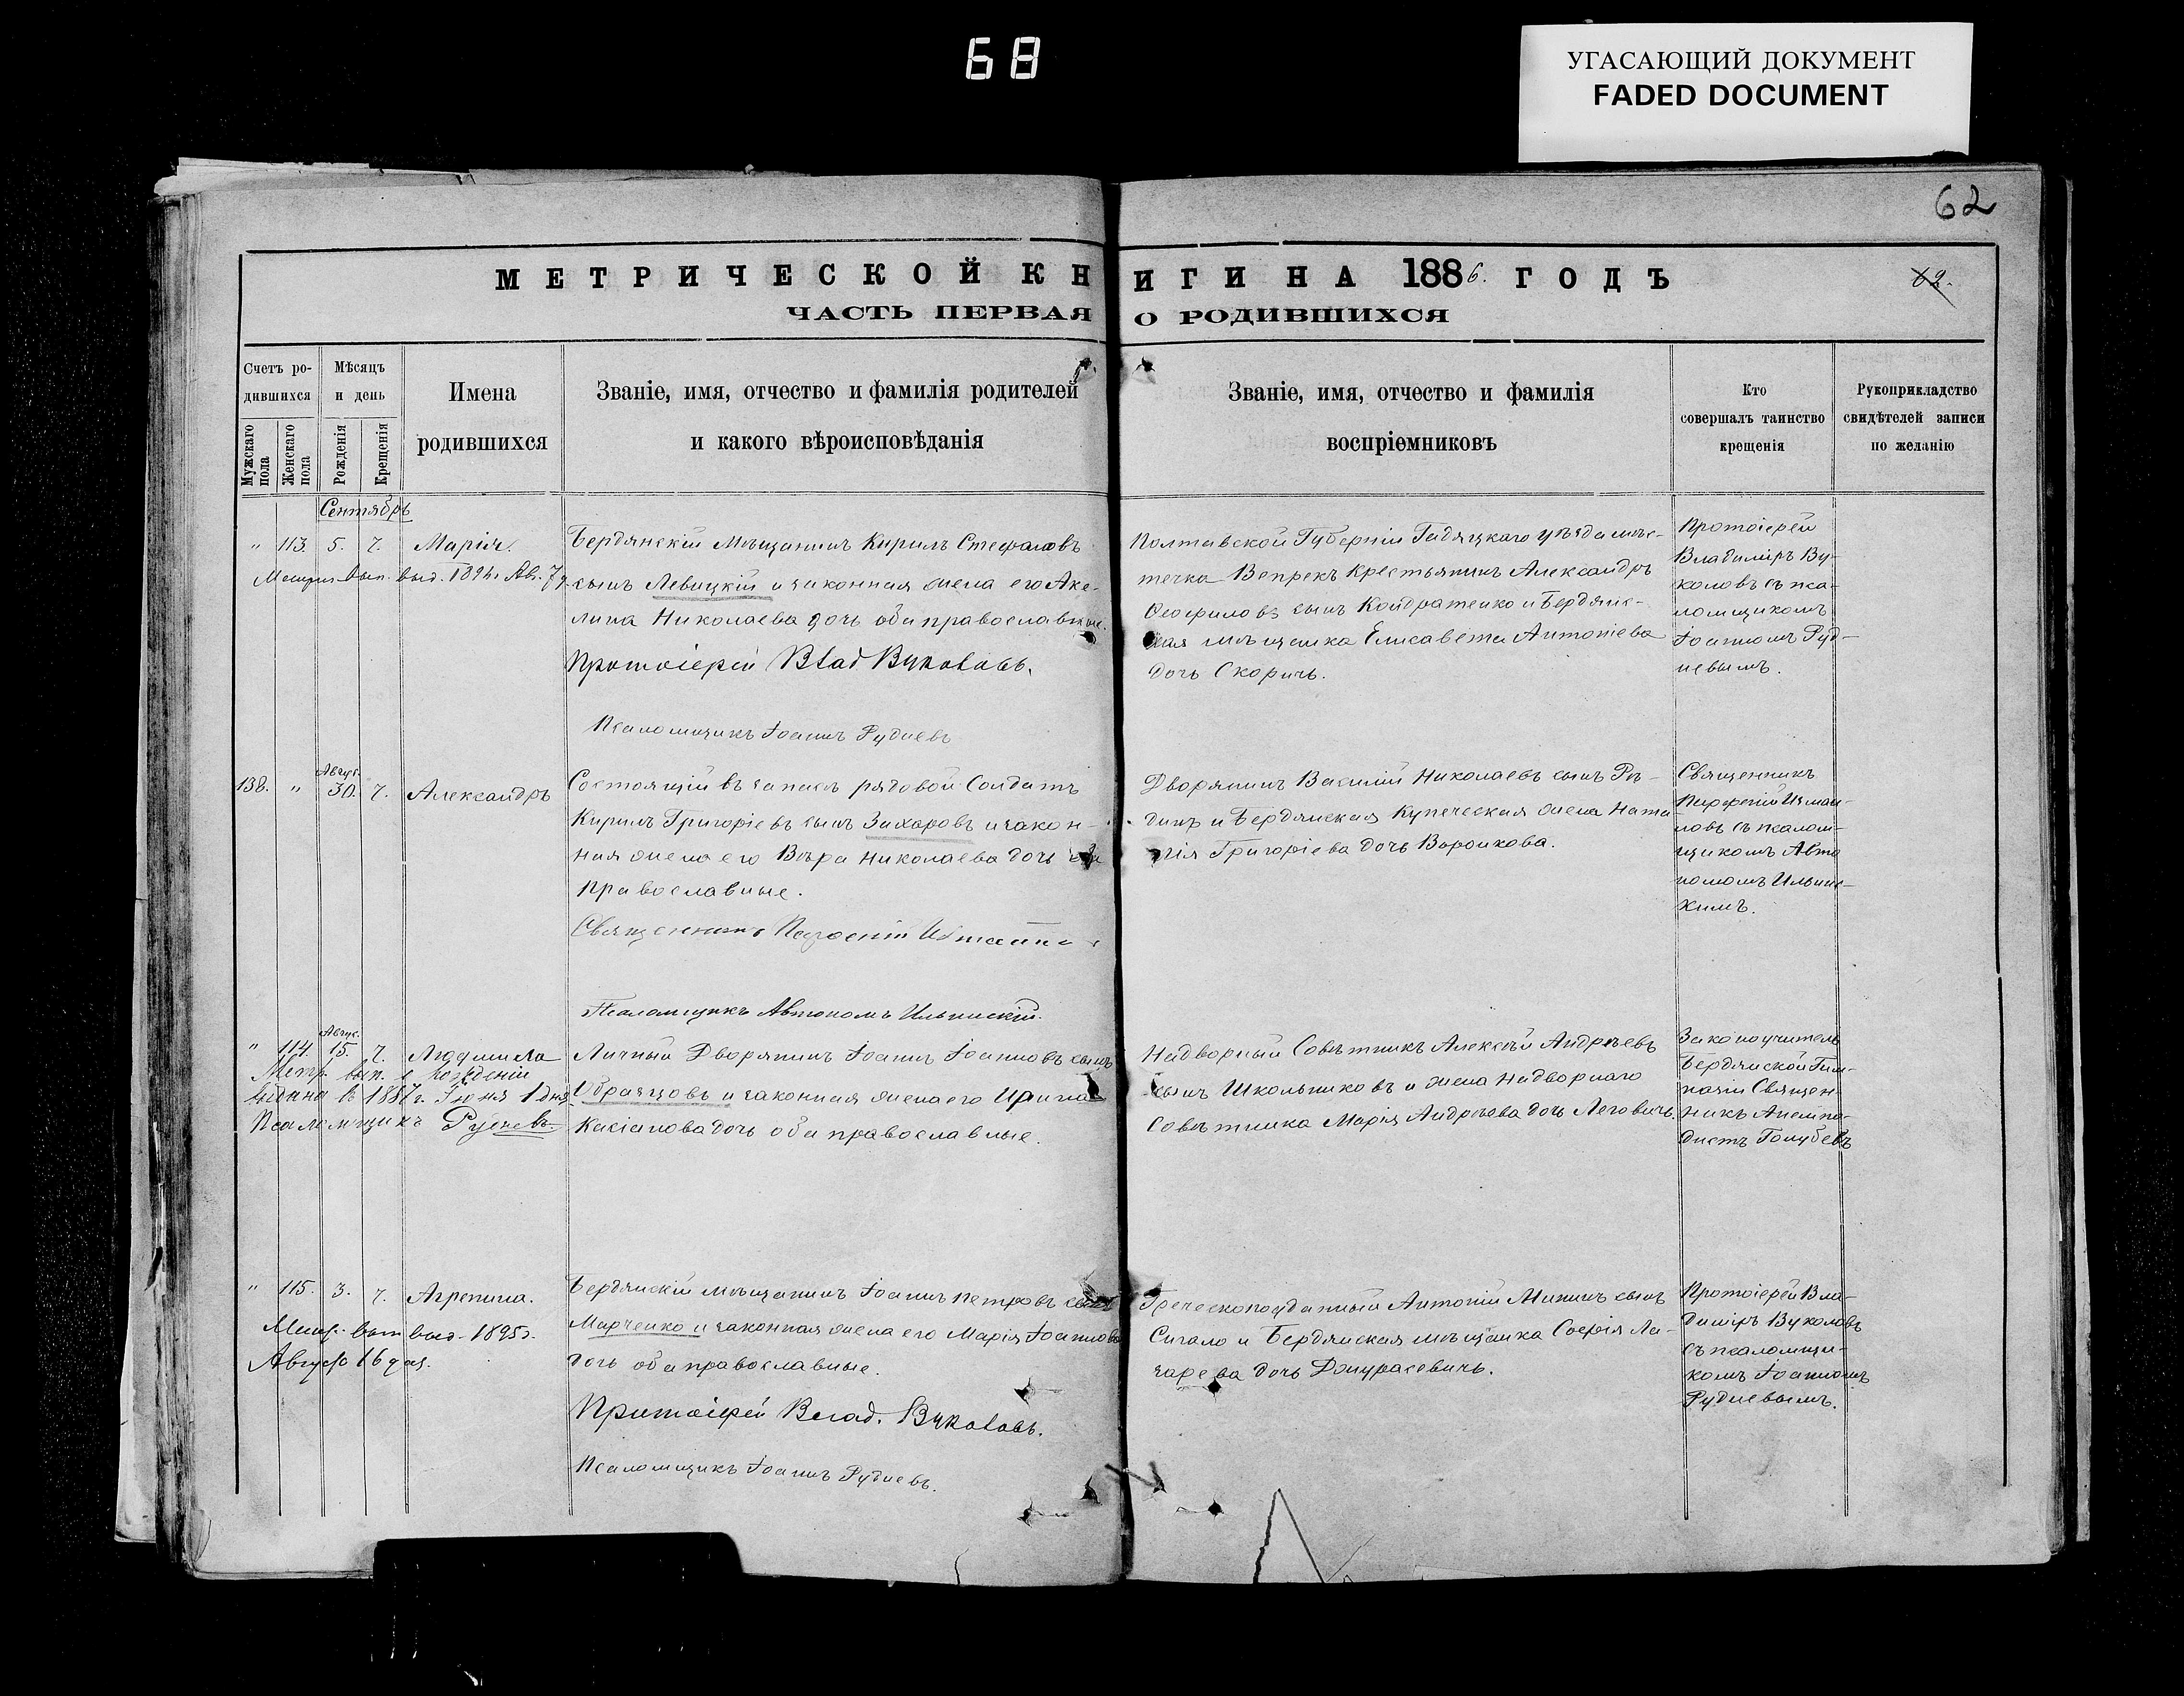 68
УГАСАЮЩИЙ ДОКУМЕНТ
FADED DOCUMENT
62
МЕТРИЧЕСКОЙ КНИГИ НА 1886. ГОДЪ
62.
ЧАСТЬ ПЕРВАЯ О РОДИВШИХСЯ
Счетъ ро-
дившихся
Мужскаго пола
Женскаго пола
Мѣсяцъ
и день
Рожденія
Крещенія
Имена
родившихся
Званіе, имя, отчество и фамилія родителей
и какого вѣроисповѣданія
Званіе, имя, отчество и фамилія
воспріемниковъ
Кто
совершалъ таинство
крещенія
Рукоприкладство
свидѣтелей записи
по желанію
Сентябрь
" 113. 5. 7. Марія.
Метрич. вып. выд. 1894. Ав. 7 д.
Бердянскій мѣщанинъ Кирилъ Стефановъ
сынъ Левицкій и законная жена его Аке-
лина Николаева дочь оба православные.
Протоіерей Влад Вуколовъ.
Псаломщикъ Іоаннъ Рудневъ
Полтавской Губерніи Гадяцкаго уѣзда мѣс-
течка Веприкъ крестьянинъ Александръ
Феофиловъ сынъ Кондратенко и Бердянс-
кая мѣщанка Елисавета Антоніева
дочь Скоричь.
Протоіерей
Владиміръ Ву-
коловъ съ пса-
ломщикомъ
Іоанномъ Руд-
невымъ.
138. " Авгус. 30. 7. Александръ
Состоящій въ запасѣ рядовой Солдатъ
Кирилъ Григоріевъ сынъ Захаровъ и закон-
ная жена его Вѣра Николаева дочь оба
православные.
Священникъ Парфеній
Псаломщикъ Автономъ Ильинскій.
Дворянинъ Василій Николаевъ сынъ Рѣ-
динъ и Бердянская купеческая жена Ната
лія Григоріева дочь Воронкова.
Священникъ
Парфеній Измаи-
ловъ съ псалом-
щикомъ Авто
номомъ Ильинс-
кимъ.
" 114. Авгус. 15. 7. Людмила
Метр. вып. о рожденіи
выдана въ 1887 г. Іюня 1 дня.
Псаломщикъ Рудневъ
Личный Дворянинъ Іоаннъ Іоанновъ сынъ
Образцовъ и законная жена его Ирина
Касіанова дочь оба православные.
Надворный Совѣтникъ Алексѣй Андреевъ
сынъ Школьниковъ и жена надворнаго
Совѣтника Марія Андреева дочь Леговичъ.
Законоучитель
Бердянской Гим-
назіи Священ-
никъ Анемпо-
дистъ Голубевъ
" 115. 3. 7. Агрепина.
Метр. вып выд. 1895 г.
Августа 16 дня.
Бердянскій мѣщанинъ Іоаннъ Петровъ сынъ
Марченко и законная жена его Марія Іоаннова
дочь оба православные.
Протоіерей Влад. Вуколовъ.
Псаломщикъ Іоаннъ Рудневъ.
Греческоподданный Антоній Мининъ сынъ
Сигало и Бердянская мѣщанка Софія Ла-
зарева дочь Джурасевичь.
Протоіерей Вла-
диміръ Вуколовъ
съ псаломщи-
комъ Іоанномъ
Рудневымъ.